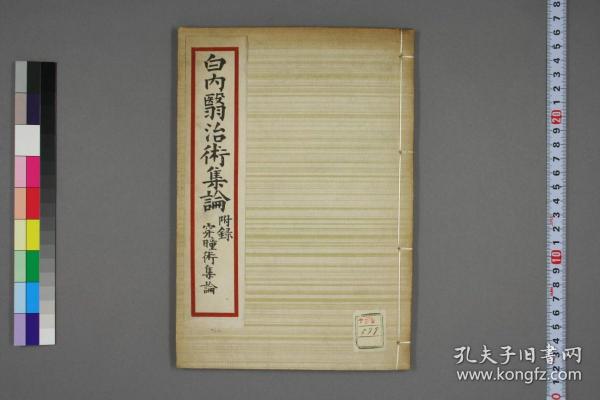 白内翳治術集論
附録
穿瞳術集論
孔夫子旧書网
www.kongfz.com